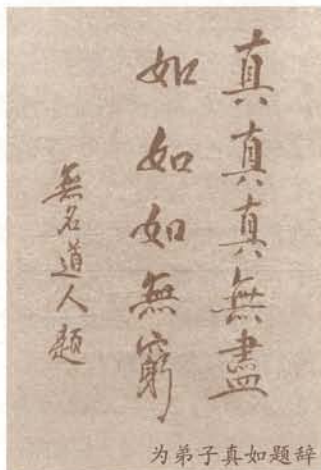 真真真無盡
如如如無窮
無名道人題
为弟子真如题辞